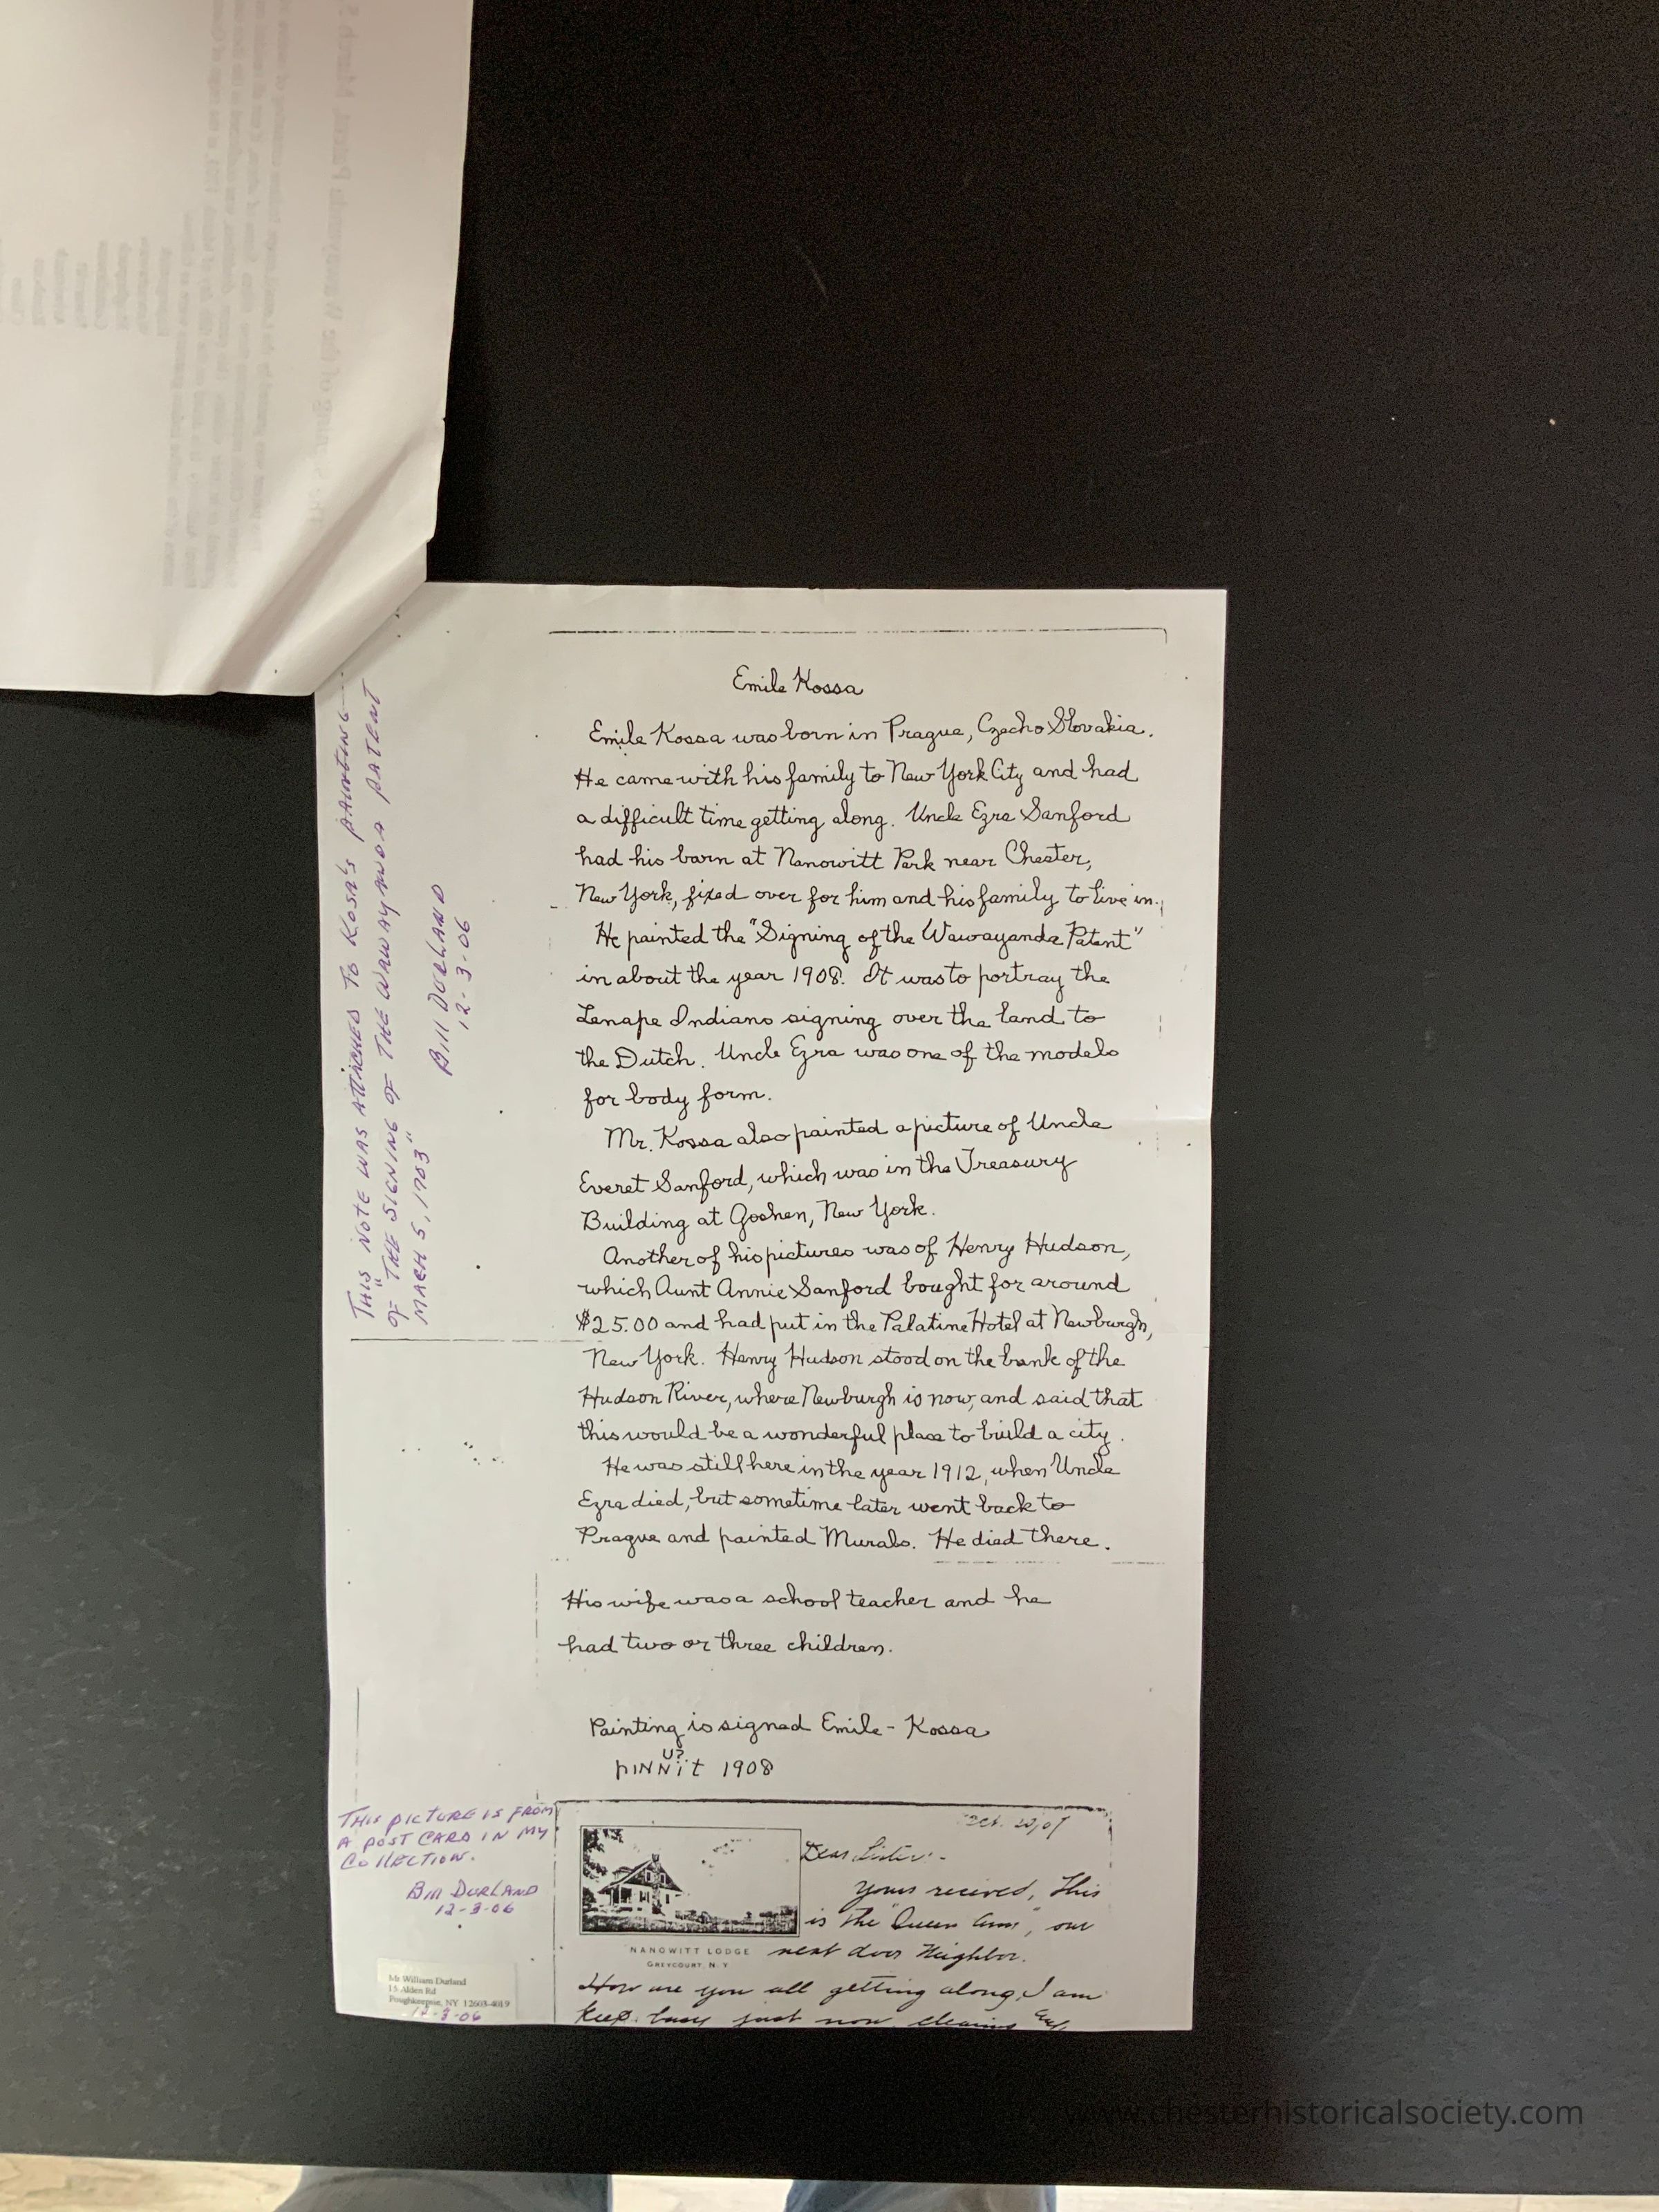 Emile Kossa
Emile Kossa was born in Prague, Czecho Slovakia.
He came with his family to New York City and had
a difficult time getting along. Uncle Ezra Sanford
had his barn at Nanowitt Park near Chester,
New York, fixed over for him and his family to live in.
He painted the "Signing of the Wawayanda Patent"
in about the year 1908. It was to portray the
Lenape Indians signing over the land to
the Dutch. Uncle Ezra was one of the models
for body form.
Mr. Kossa also painted a picture of Uncle
Everet Sanford, which was in the Treasury
Building at Goshen, New York.
Another of his pictures was of Henry Hudson,
which Aunt Annie Sanford bought for around
$25.00 and had put in the Palatine Hotel at Newburgh,
New York. Henry Hudson stood on the bank of the
Hudson River, where Newburgh is now, and said that
this would be a wonderful place to build a city.
He was still here in the year 1912, when Uncle
Ezra died, but sometime later went back to
Prague and painted Murals. He died there.
His wife was a school teacher and he
had two or three children.
Painting is signed Emile - Kossa
U?
pINNit 1908
THIS NOTE WAS ATTACHED TO KOSA'S PAINTING
OF "THE SIGNING OF THE WAWAYANDA PATENT
MARCH 5, 1703"
Bill DURLAND
12-3-06
THIS PICTURE IS FROM
A POST CARD IN MY
COLLECTION.
Bill DURLAND
12-3-06
Mr William Durland
15 Alden Rd
Poughkeepsie, NY 12603-4019
12-3-06
Oct. 20, 07
Dear Sister:-
Yours recived, This
is the "Queen Ann", our
next door Neighbor.
NANOWITT LODGE
GREYCOURT, N.Y
How are you all getting along, I am
Keep busy just now cleaning
www.chesterhistoricalsociety.com